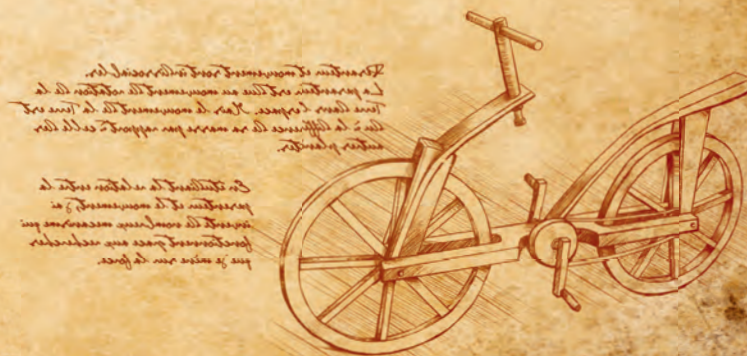 Pesanteur et mouvement sont indissociables.
La pesanteur est liée au mouvement de rotation de la
Terre dans l'espace. le mouvement de la Terre est
dû à la différence de sa masse par rapport à celle des
autres planètes.
En étudiant la relation entre la
pesanteur et le mouvement, j'ai
inventé de nombreux mécanismes qui
fonctionnent grâce aux recherches
que je mène sur la force.